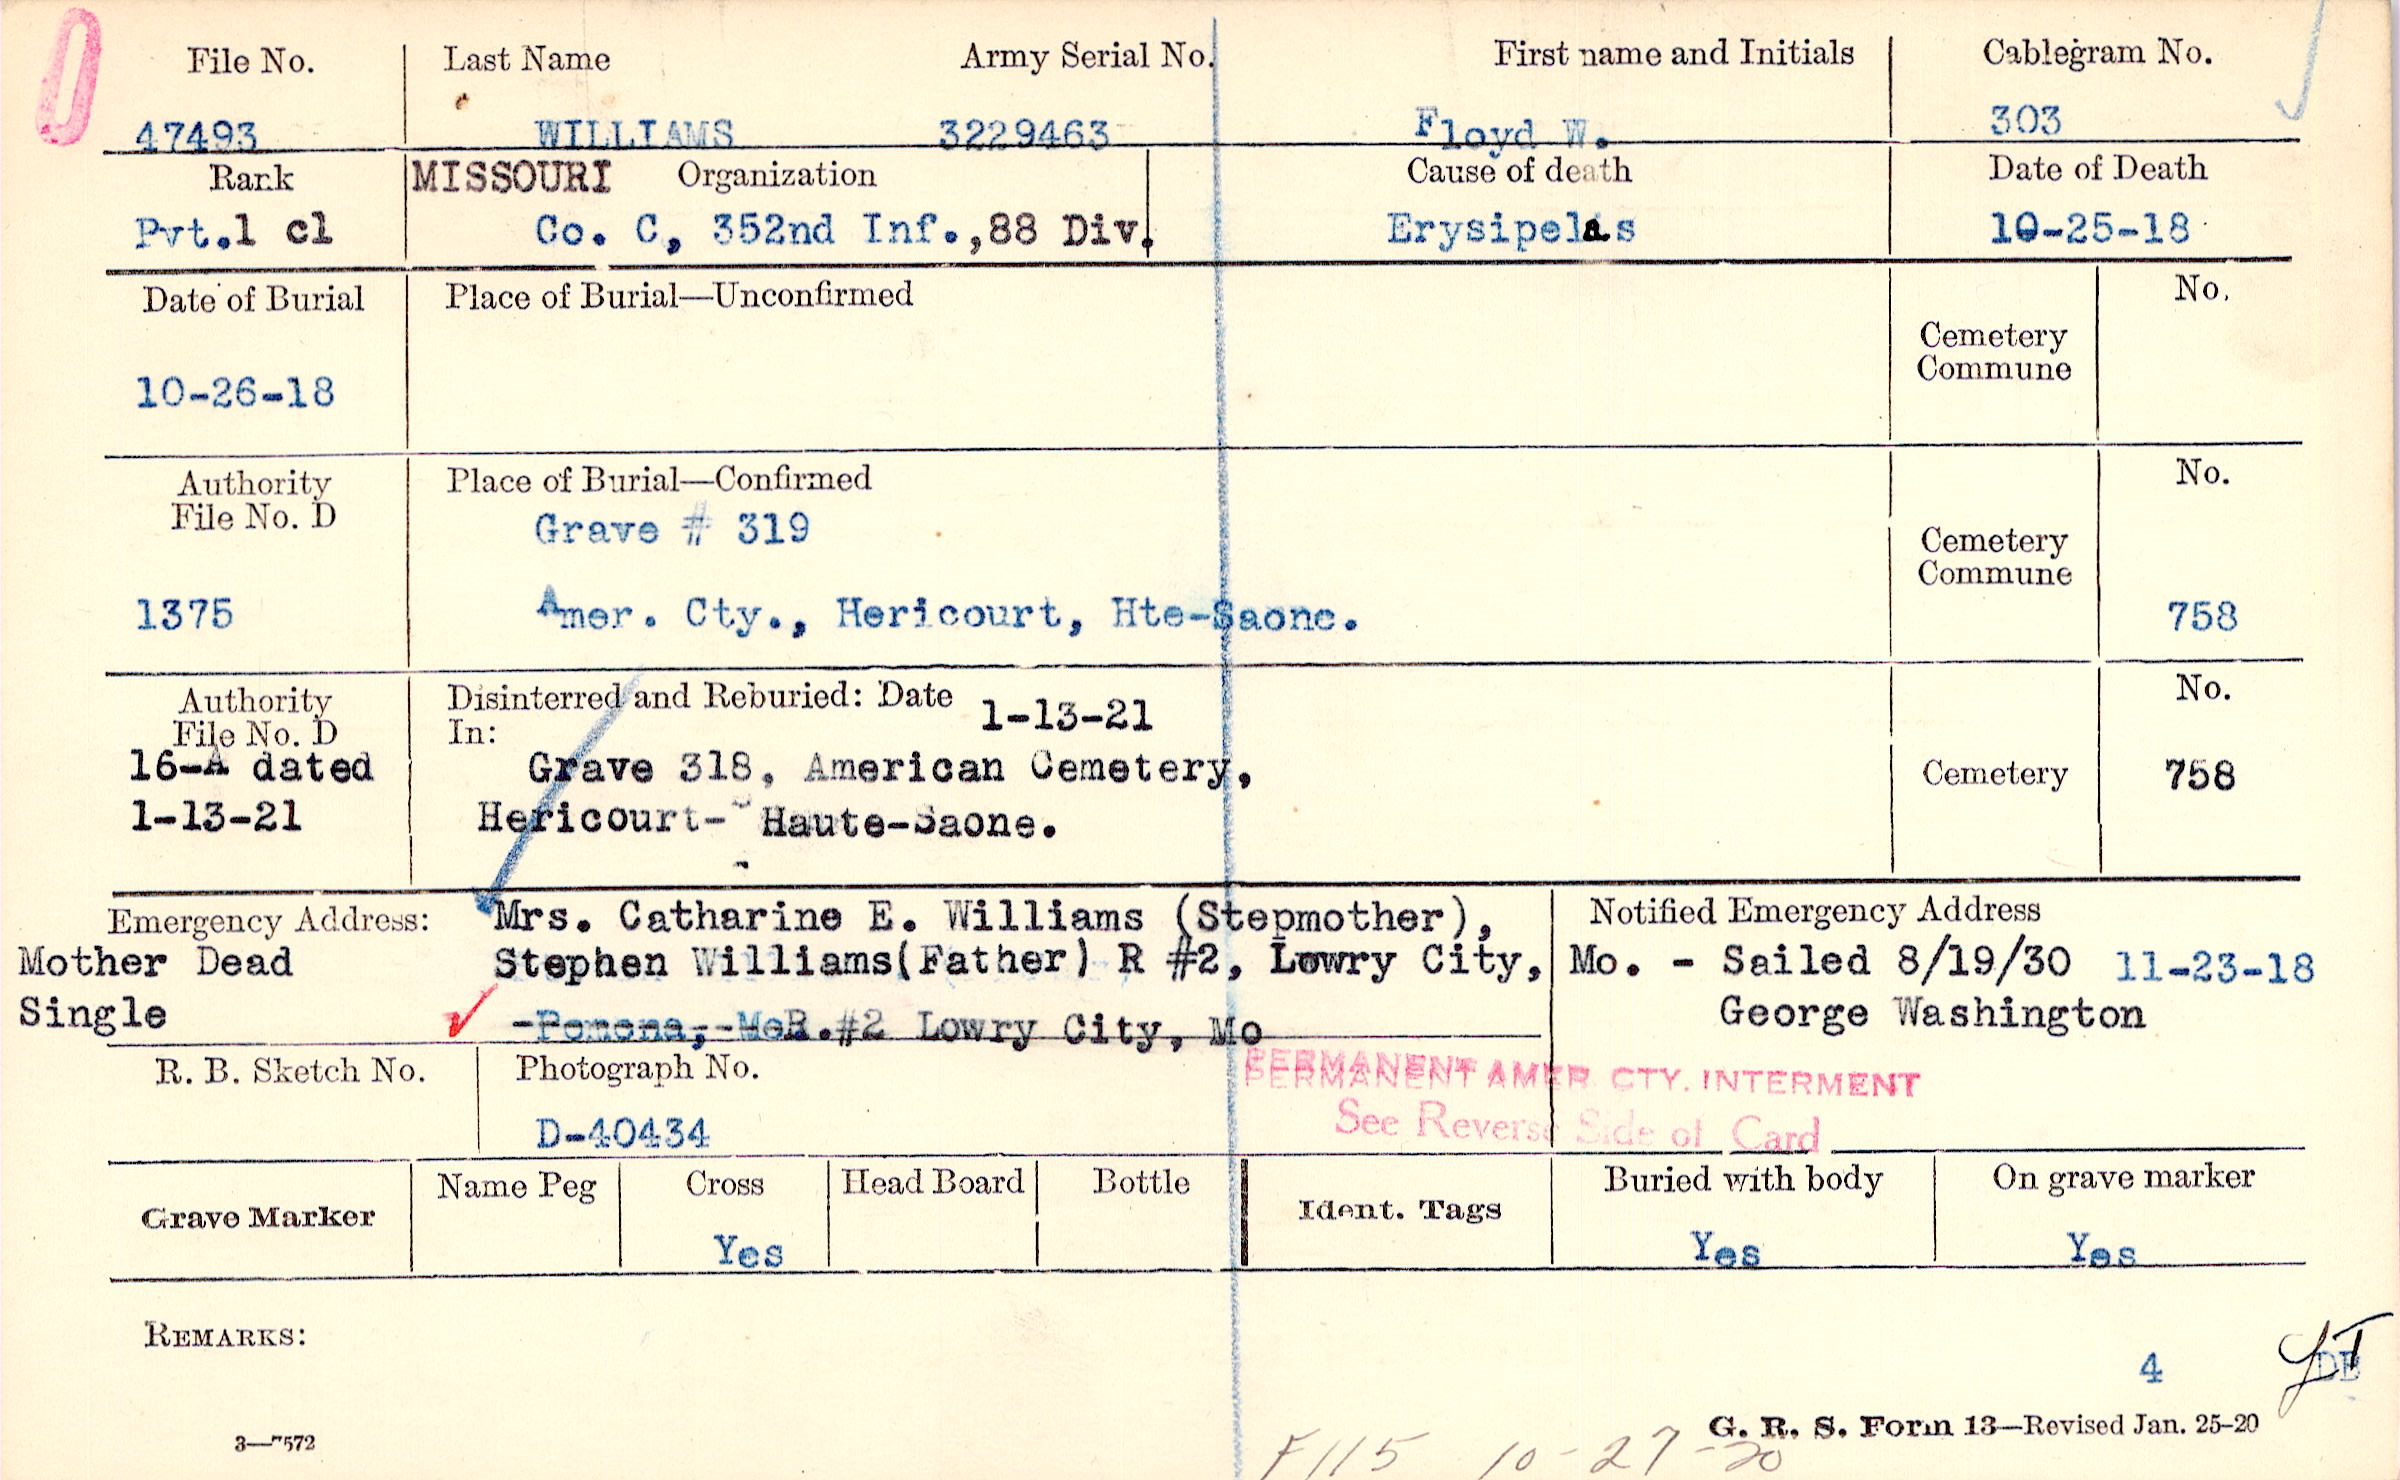 File No. Last Name Army Serial No. First name and Initials Cablegram No.
47493 WILLIAMS 3229463 Floyd W. 303
Rank MISSOURI Organization Cause of death Date of Death
Pvt.1 cl Co. C, 352nd Inf.,88 Div. Erysipelas 10-25-18
Date of Burial Place of Burial—Unconfirmed No.
Cemetery
Commune
10-26-18
Authority Place of Burial—Confirmed No.
File No. D
Grave # 319
Cemetery
Commune
1375 Amer. Cty., Hericourt, Hte-Saone. 758
Authority Disinterred and Reburied: Date 1-13-21 No.
File No. D In:
16-A dated Grave 318, American Cemetery, Cemetery 758
1-13-21 Hericourt- Haute-Saone.
Emergency Address: Mrs. Catharine E. Williams (Stepmother), Notified Emergency Address
Mother Dead Stephen Williams(Father) R #2, Lowry City, Mo. - Sailed 8/19/30 11-23-18
Single R.#2 Lowry City, Mo George Washington
R. B. Sketch No. Photograph No.
PERMANENT AMER CTY. INTERMENT
See Reverse Side of Card
D-40434
Grave Marker Name Peg Cross Head Board Bottle Ident. Tags Buried with body On grave marker
Yes Yes Yes
REMARKS:
4
G. R. S. Form 13—Revised Jan. 25-20
3—7572
F115 10-27-20